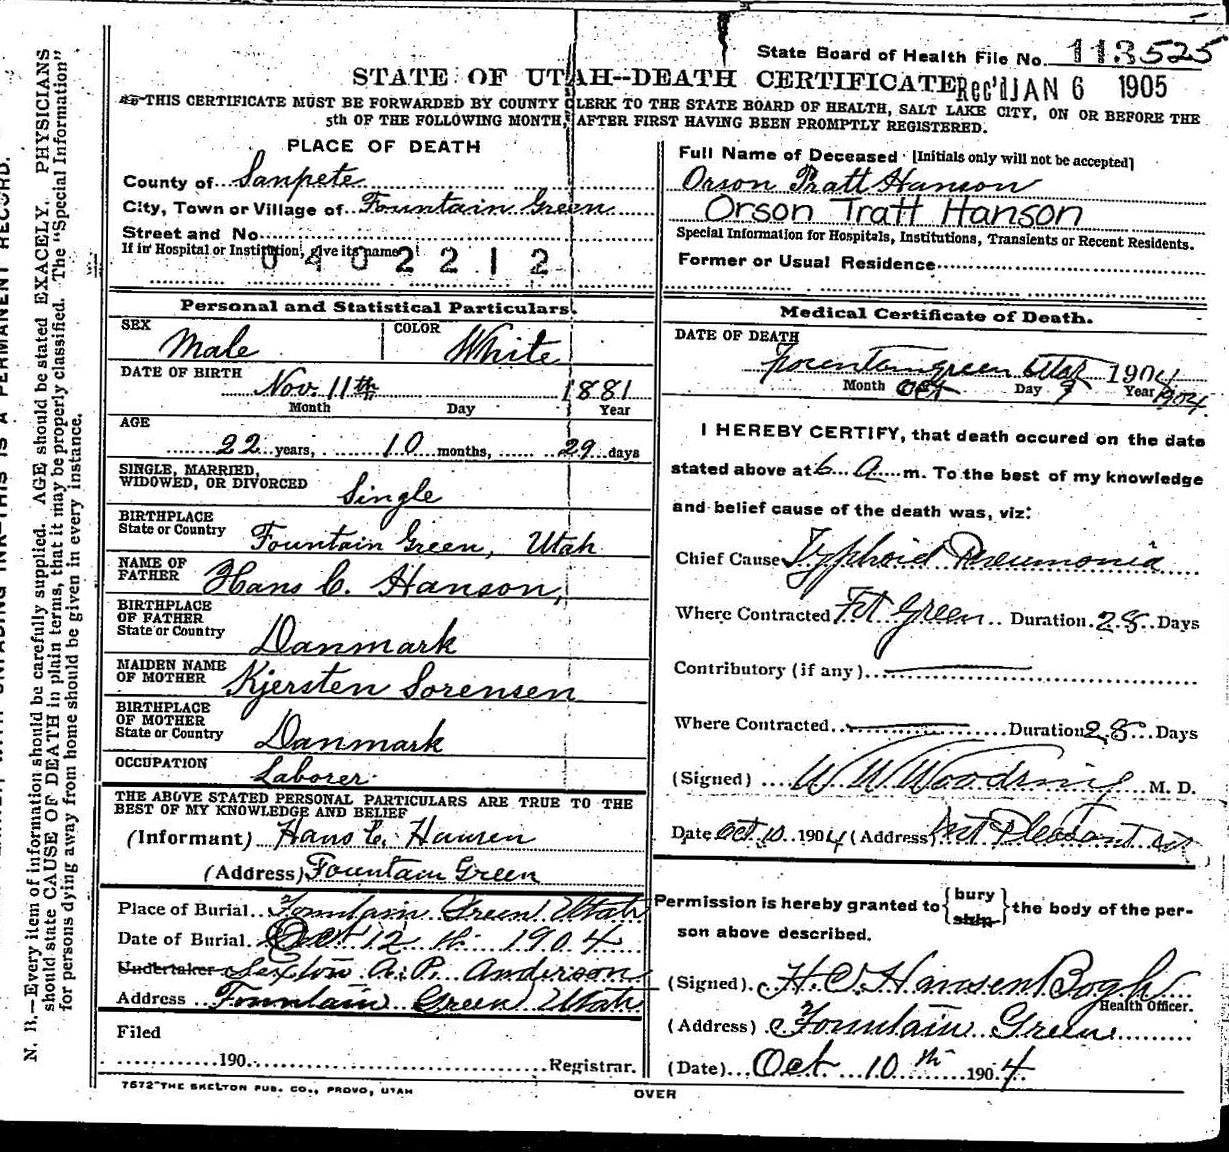 State Board of Health File No. 113525
STATE OF UTAH--DEATH CERTIFICATE Rec'd JAN 6 1905
THIS CERTIFICATE MUST BE FORWARDED BY COUNTY CLERK TO THE STATE BOARD OF HEALTH, SALT LAKE CITY, ON OR BEFORE THE
5th OF THE FOLLOWING MONTH, AFTER FIRST HAVING BEEN PROMPTLY REGISTERED.
PLACE OF DEATH
County of Sanpete
City, Town or Village of Fountain Green
Street and No.
If in Hospital or Institution, give its name
0402212
Full Name of Deceased [Initials only will not be accepted]
Orson Pratt Hanson
Orson Tratt Hanson
Special Information for Hospitals, Institutions, Transients or Recent Residents.
Former or Usual Residence
Personal and Statistical Particulars.
SEX Male COLOR White
DATE OF BIRTH Nov. 11th 1881
Month Day Year
AGE
22 years, 10 months, 29 days
SINGLE, MARRIED,
WIDOWED, OR DIVORCED Single
BIRTHPLACE
State or Country Fountain Green, Utah
NAME OF
FATHER Hans C. Hanson,
BIRTHPLACE
OF FATHER
State or Country Danmark
MAIDEN NAME
OF MOTHER Kjersten Sorensen
BIRTHPLACE
OF MOTHER
State or Country Danmark
OCCUPATION Laborer
THE ABOVE STATED PERSONAL PARTICULARS ARE TRUE TO THE
BEST OF MY KNOWLEDGE AND BELIEF
(Informant) Hans C. Hansen
(Address) Fountain Green
Place of Burial Fountain Green Utah
Date of Burial Oct 12 th 1904
Undertaker Sexton A. P. Anderson
Address Fountain Green Utah
Filed
190 Registrar.
7572 THE SKELTON PUB. CO., PROVO, UTAH
Medical Certificate of Death.
DATE OF DEATH
Fountaingreen Utah 1904
Month Oct Day 9 Year 1904
I HEREBY CERTIFY, that death occured on the date
stated above at 6 a m. To the best of my knowledge
and belief cause of the death was, viz:
Chief Cause Typhoid Pneumonia
Where Contracted Ft Green Duration 28 Days
Contributory (if any)
Where Contracted Duration 28 Days
(Signed) M. D.
Date Oct 10 1904 (Address) Mt Pleasant
Permission is hereby granted to {bury ship} the body of the per-
son above described.
(Signed) H. C. Hansen Bogh
Health Officer.
(Address) Fountain Green
(Date) Oct 10 th 1904
OVER
N. B.—Every item of information should be carefully supplied. AGE should be stated EXACELY. PHYSICIANS
should state CAUSE OF DEATH in plain terms, that it may be properly classified. The "Special Information"
for persons dying away from home should be given in every instance.
THIS IS A PERMANENT RECORD.